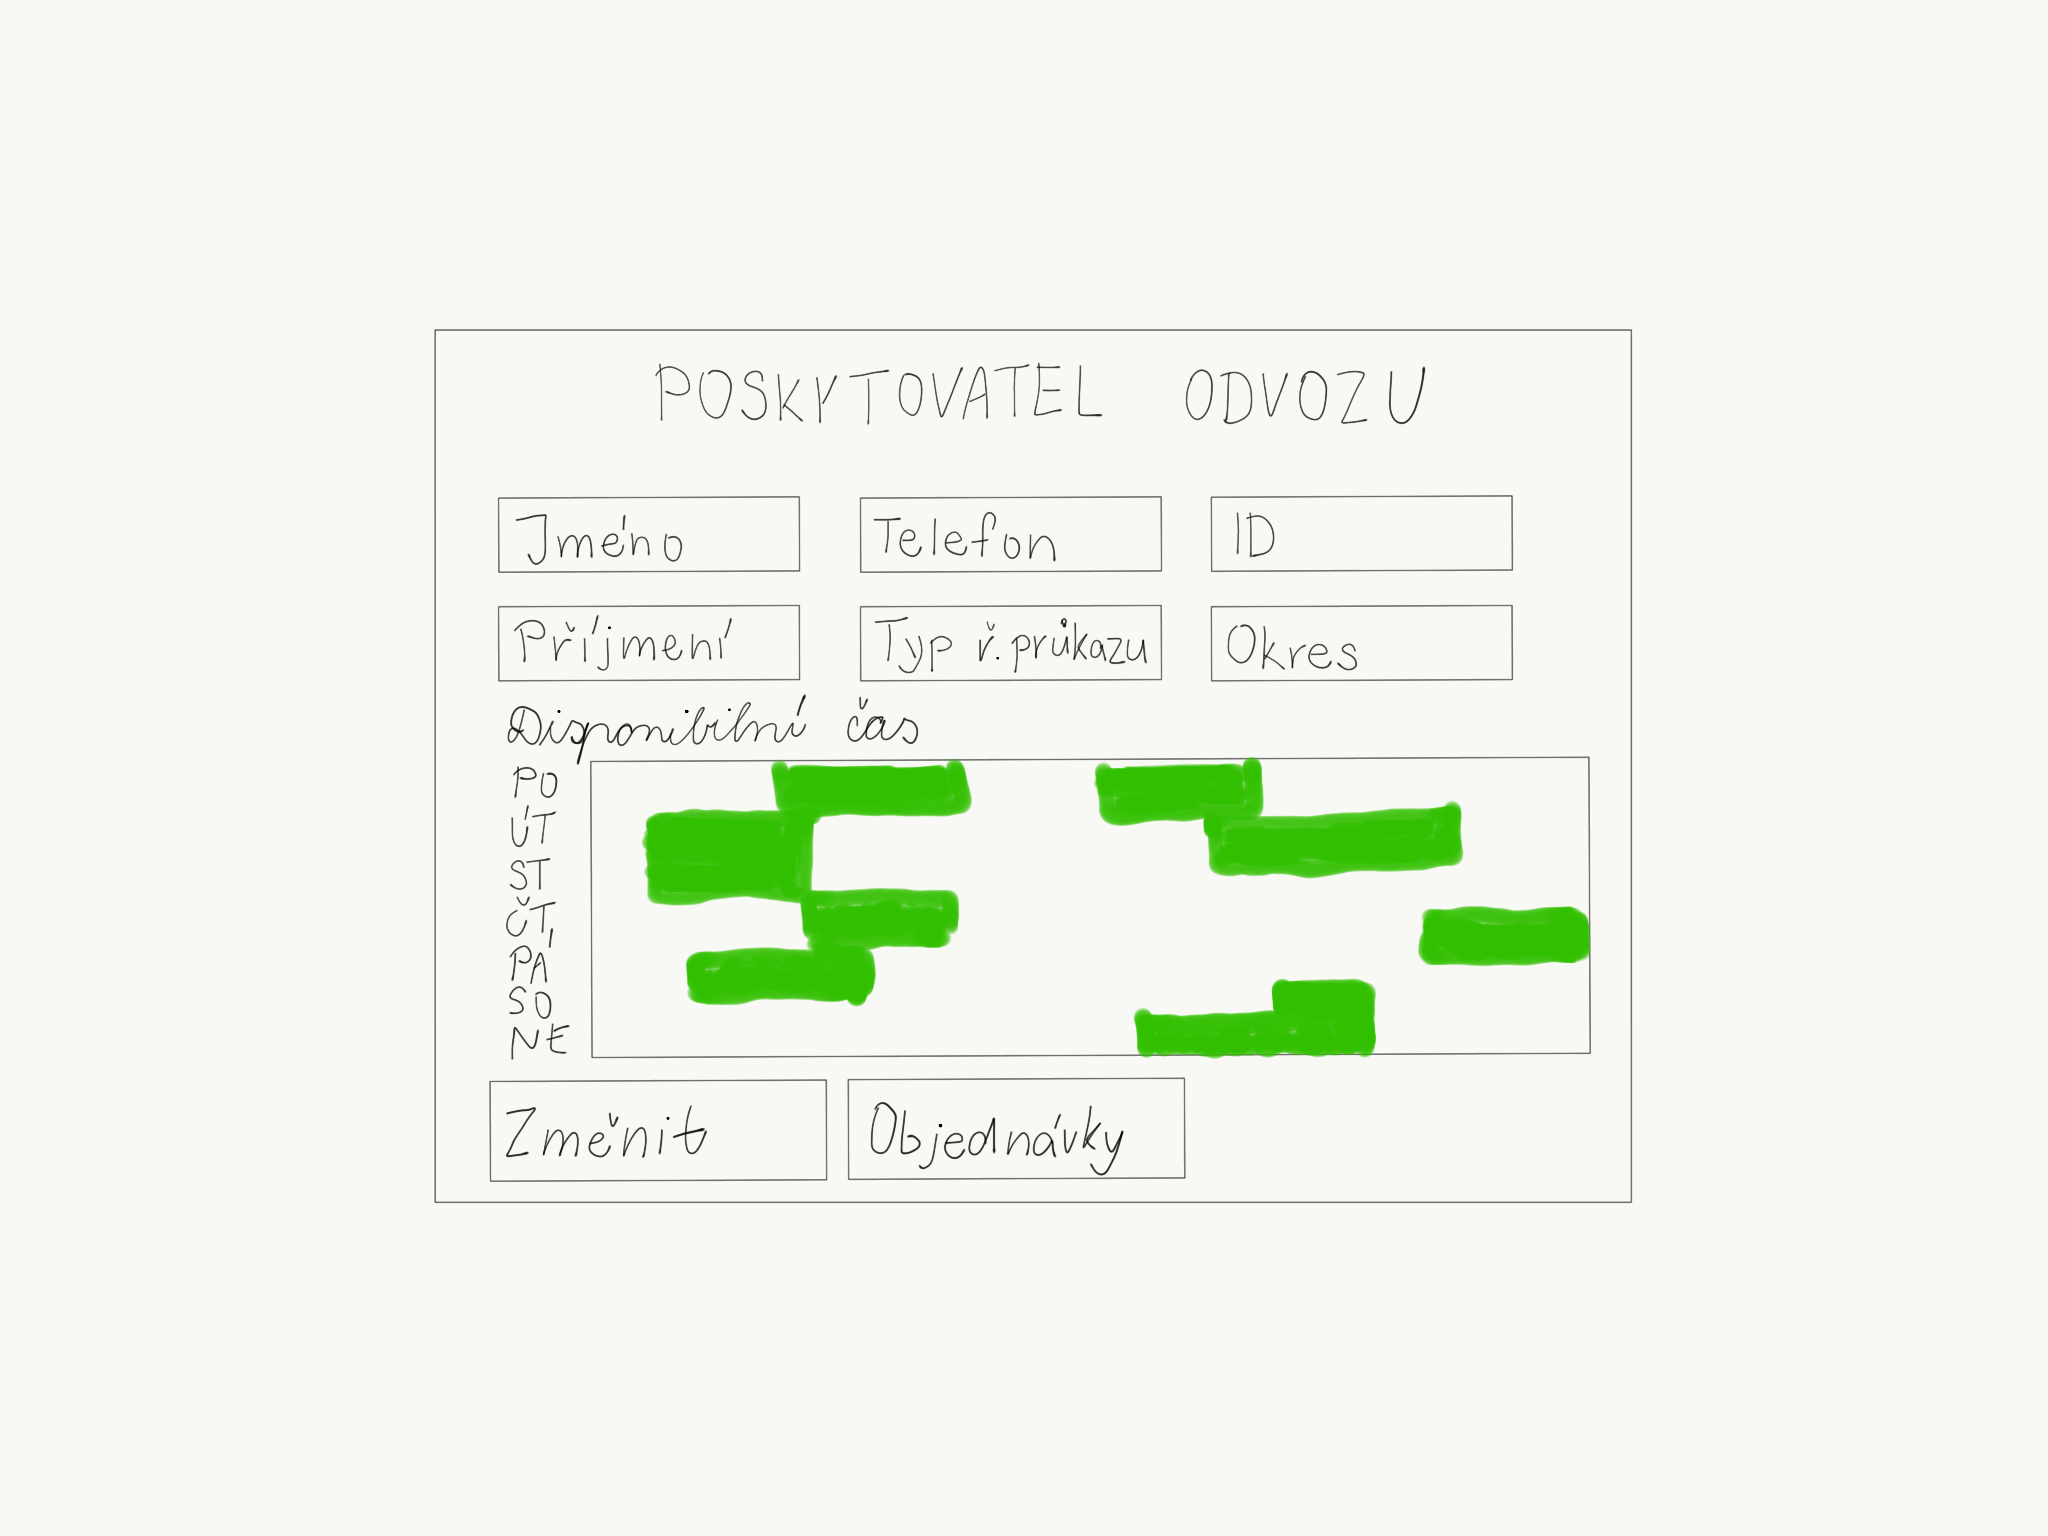 POSKYTOVATEL ODVOZU
Jméno Telefon ID
Příjmení Typ ř. průkazu Okres
Disponibilní čas
PO
ÚT
ST
ČT
PÁ
SO
NE
Změnit Objednávky